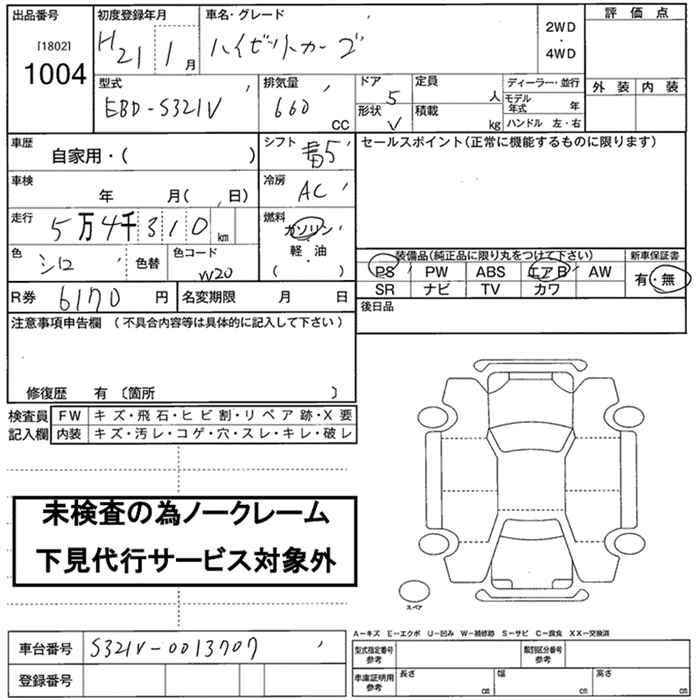 出品番号 初度登録年月 車名・グレード 評価点
[1802] H21 1月 ハイゼットカーゴ 2WD・4WD
1004
型式 排気量 ドア 定員 ディーラー・並行 外装 内装
EBD-S321V 660 CC 5 人 モデル年式 年
形状 V 積載 kg ハンドル 左・右
車歴 シフト セールスポイント(正常に機能するものに限ります)
自家用・( ) 5
車検 冷房
年 月( 、日) AC
走行 燃料
5万4千310km ガソリン・軽油
色 色替 色コード ( ) 装備品(純正品に限り丸をつけて下さい) 新車保証書
シロ W20 PS PW ABS エアB AW 有・無
SR ナビ TV カワ
R券 6170円 名変期限 月 日 後日品
注意事項申告欄 (不具合内容等は具体的に記入して下さい)
修復歴 有 〔箇所 〕
検査員 FW キズ・飛石・ヒビ割・リペア跡・X要
記入欄 内装 キズ・汚レ・コゲ・穴・スレ・キレ・破レ
未検査の為ノークレーム
下見代行サービス対象外
スペア
A－キズ E－エクボ U－凹み W－補修跡 S－サビ C－腐食 XX－交換済
車台番号 S321V-0013707 型式指定番号 参考 類別区分番号 参考
登録番号 車庫証明用 参考 長さ cm 幅 cm 高さ cm